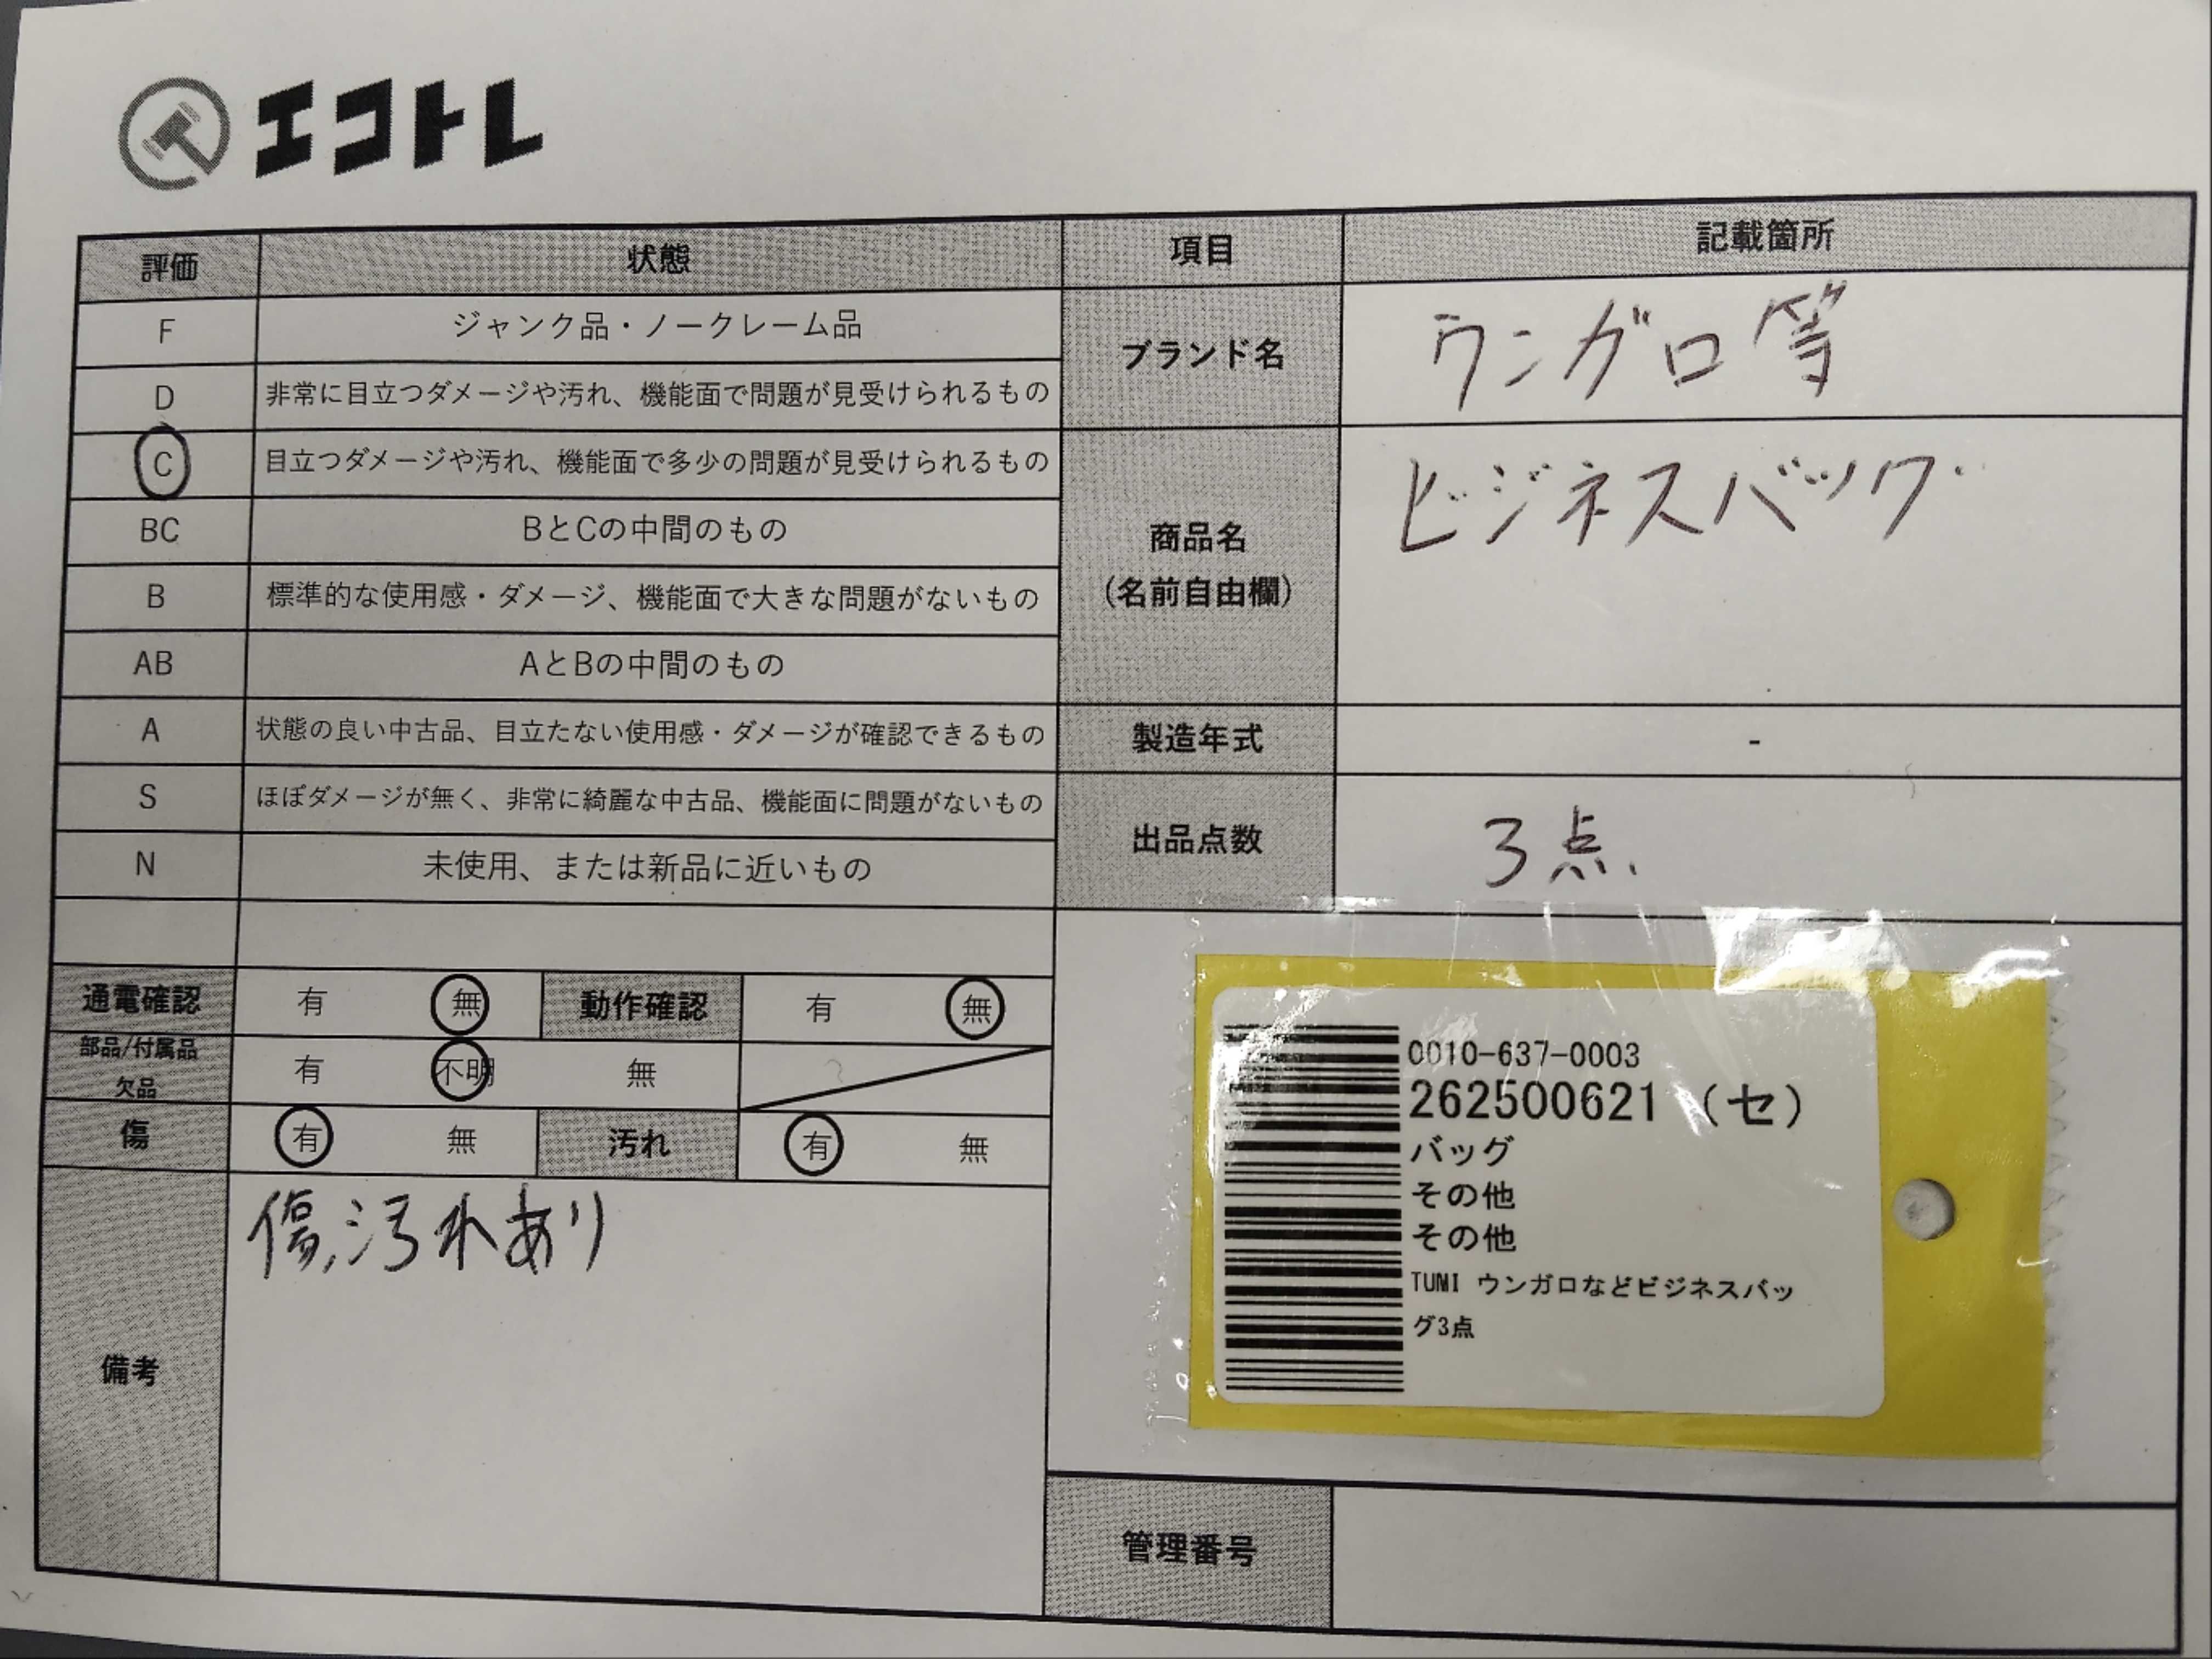 エコトレ
評価 状態 項目 記載箇所
F ジャンク品・ノークレーム品
D 非常に目立つダメージや汚れ、機能面で問題が見受けられるもの
C 目立つダメージや汚れ、機能面で多少の問題が見受けられるもの
BC BとCの中間のもの
B 標準的な使用感・ダメージ、機能面で大きな問題がないもの
AB AとBの中間のもの
A 状態の良い中古品、目立たない使用感・ダメージが確認できるもの
S ほぼダメージが無く、非常に綺麗な中古品、機能面に問題がないもの
N 未使用、または新品に近いもの
ブランド名 ウンガロ等
商品名
(名前自由欄)
ビジネスバッグ
製造年式 -
出品点数 3点
通電確認 有 無 動作確認 有 無
部品/付属品
欠品
有 不明 無
傷 有 無 汚れ 有 無
備考
傷、汚れあり
0010-637-0003
262500621 (セ)
バッグ
その他
その他
TUMI ウンガロなどビジネスバッ
グ3点
管理番号